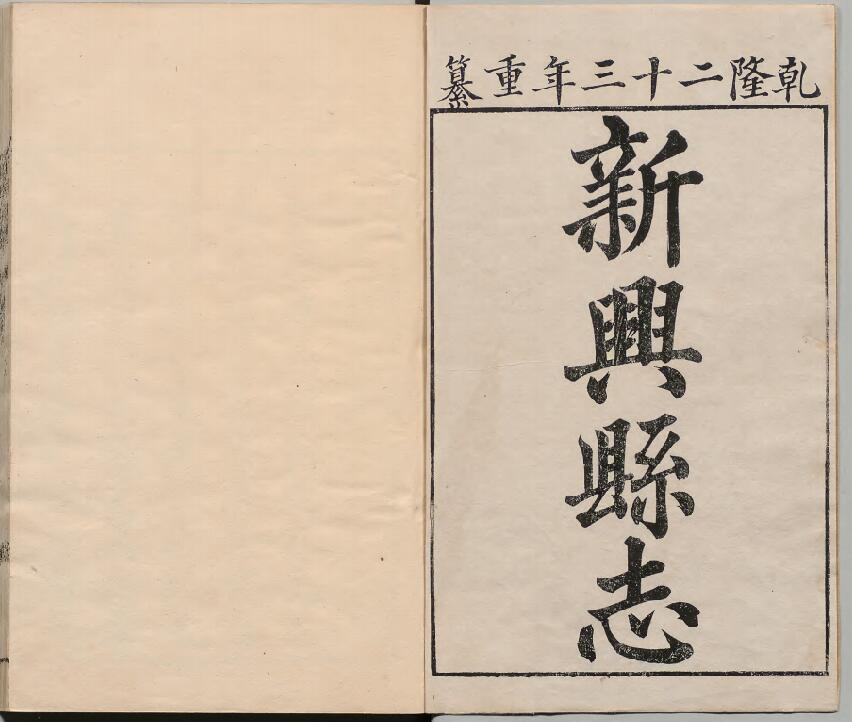 乾隆二十三年重纂
新興縣志